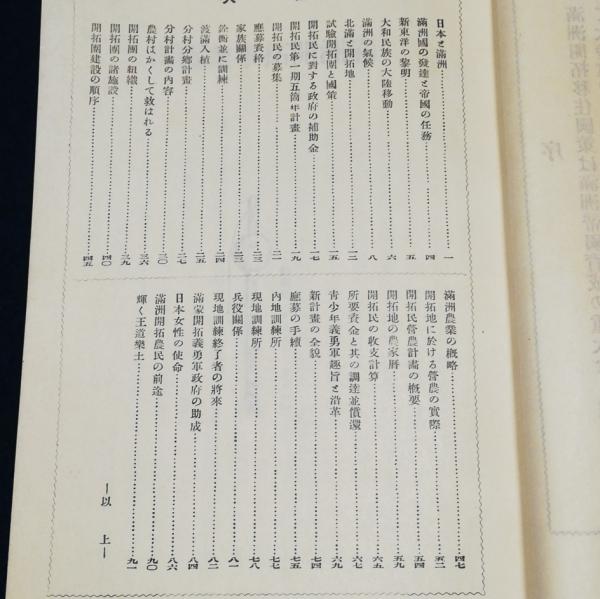 日本と滿洲…………一
滿洲國の發達と帝國の任務…………四
新東洋の黎明…………五
大和民族の大陸移動…………六
滿洲の氣候…………八
北滿と開拓地…………一二
試驗開拓團と國策…………一五
開拓民に對する政府の補助金…………一七
開拓民第一期五箇年計畫…………一九
開拓民の募集…………二一
應募資格…………二二
家族關係…………二三
銓衡並に訓練…………二四
渡滿入植…………二五
分村分鄕計畫…………二七
分村計畫の內容…………三二
農村はかくして救はれる…………三六
開拓團の組織…………三九
開拓團の諸施設…………四〇
開拓團建設の順序…………四五
滿洲農業の槪略…………四七
開拓地に於ける營農の實際…………五二
開拓民營農計畫の槪要…………五四
開拓地の農家曆…………五九
開拓民の收支計算…………六五
所要資金と其の調達並償還…………六七
靑少年義勇軍趣旨と沿革…………六九
新計畫の全貌…………七四
應募の手續…………七五
內地訓練所…………七七
現地訓練所…………七八
兵役關係…………八一
現地訓練終了者の將來…………八二
滿蒙開拓義勇軍政府の助成…………八四
日本女性の使命…………八六
滿洲開拓農民の前途…………九〇
輝く王道樂土…………九一
―以上―
序